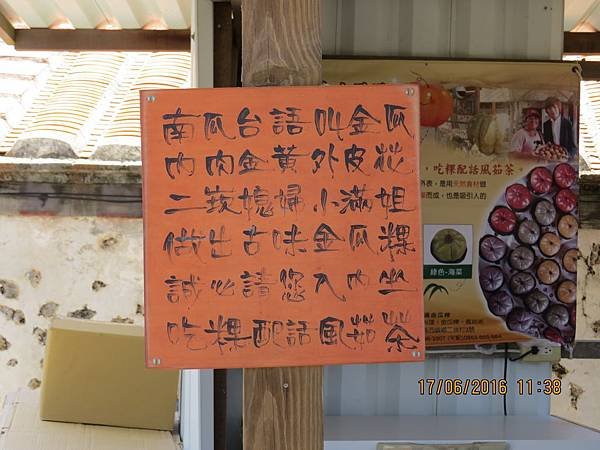 南瓜台語叫金瓜
內肉金黃外皮花
二崁媳婦小滿姐
做出古味金瓜粿
誠心請您入內坐
吃粿配話風茹茶
吃粿配話風茹茶
綠色-海菜
17/06/2016 11:38